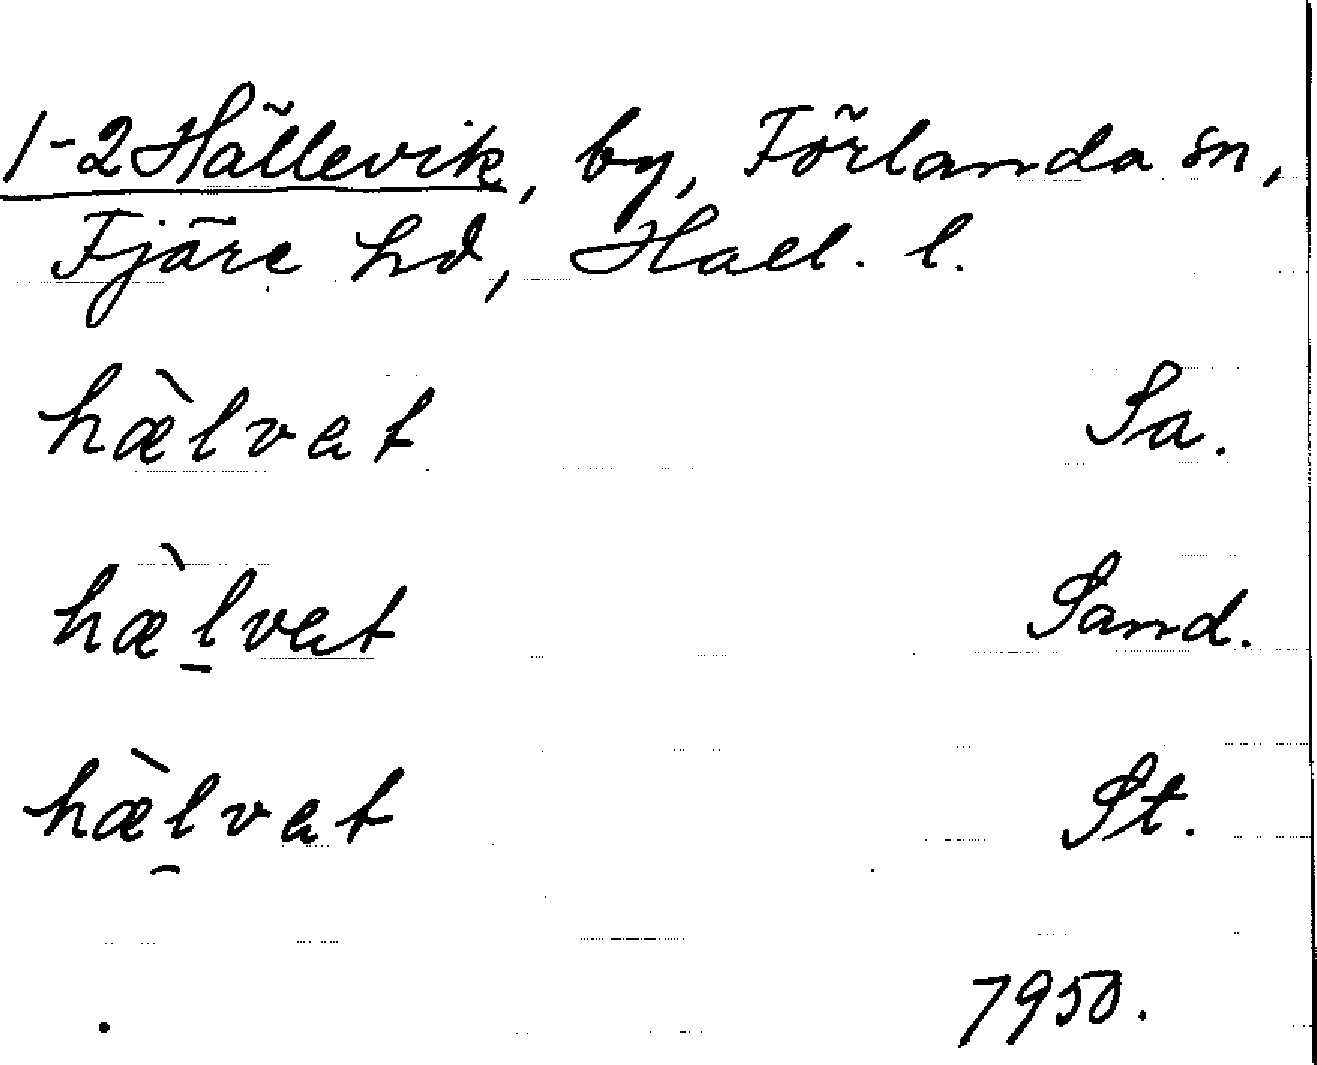 1-2 Hällevik, by, Förlanda sn,
Fjäre hd, Hall. l.
hæ̀lvat Sa.
hæ̀l̠vat Sand.
hæ̀l̯vat St.
1950.